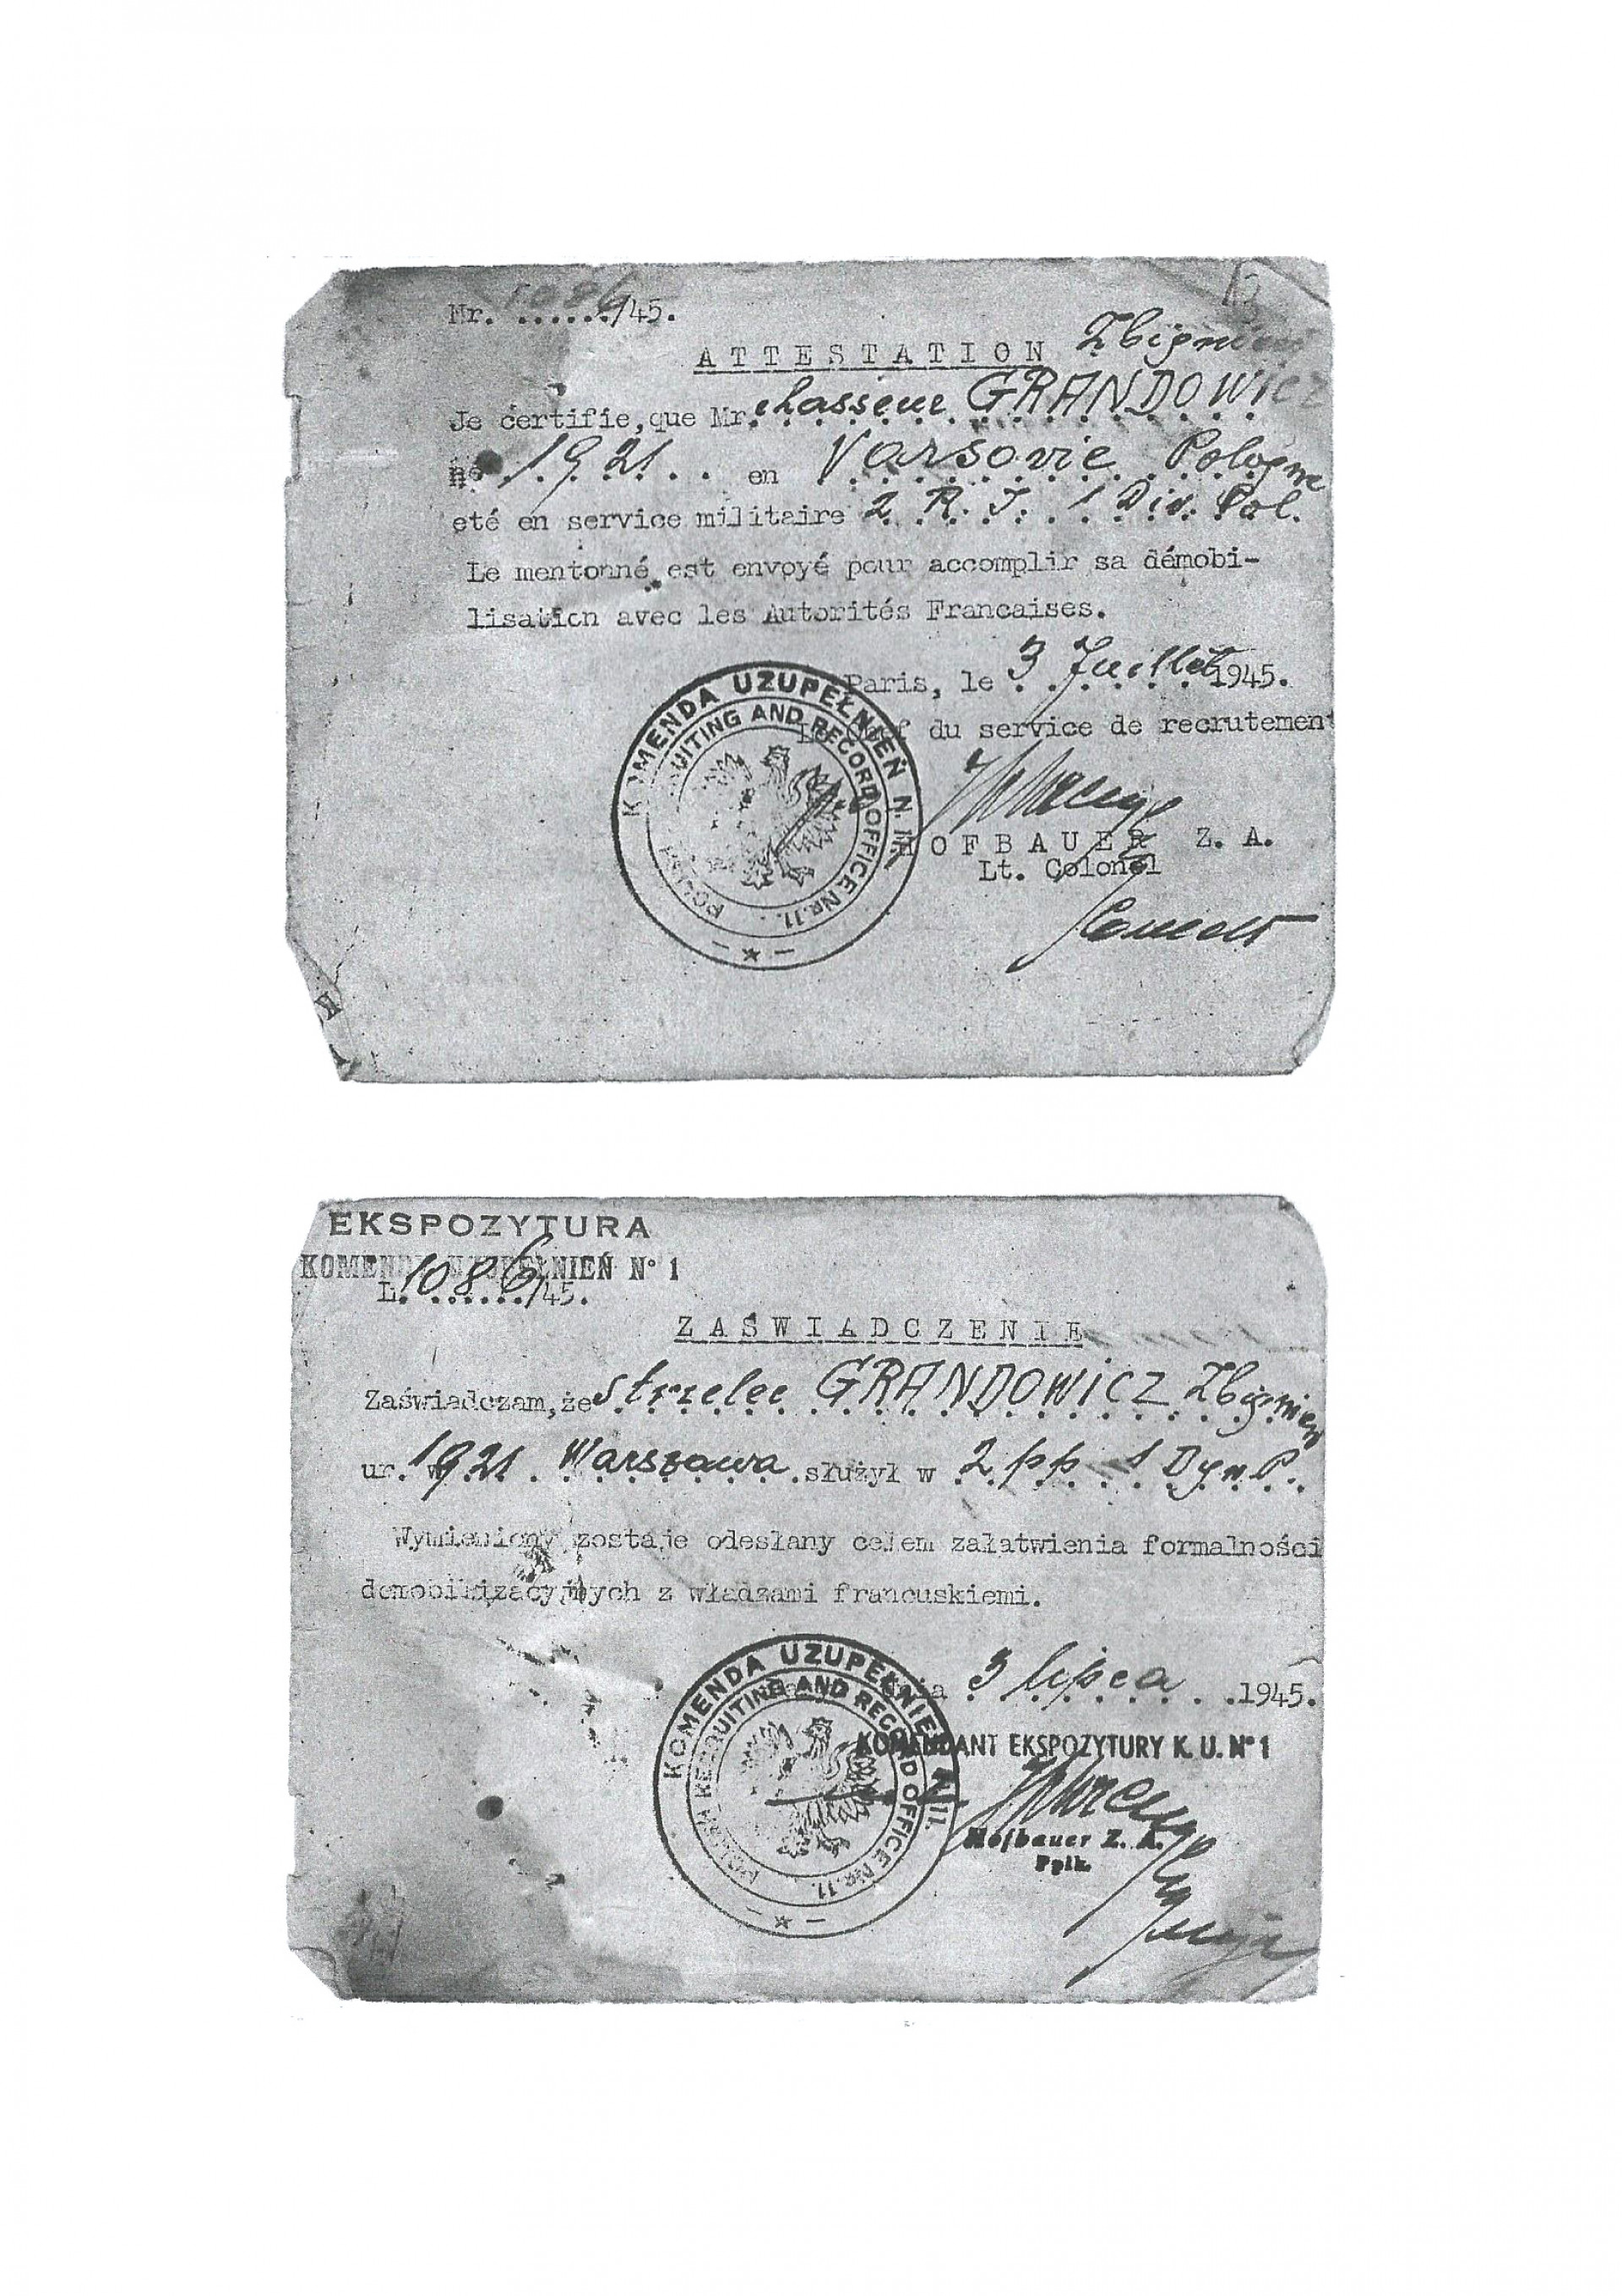 Nr. 1086/45.
ATTESTATION
Zbigniew
Je certifie, que Mr. chasseur GRANDOWICZ
né 1921 en Varsovie Pologne
eté en service militaire 2 R. I. 1 Div. Pol.
Le mentonné est envoyé pour accomplir sa démobi-
lisation avec les Autorités Francaises.
Paris, le 3 Juillet 1945.
Le Chef du service de recrutement
HOFBAUER Z. A.
Lt. Colonel
KOMENDA UZUPEŁNIEŃ N. 11.
RECRUITING AND RECORD OFFICE NR. 11.
EKSPOZYTURA
KOMENDA UZUPEŁNIEŃ N° 1
L. 1086/45.
ZAŚWIADCZENIE
Zaświadczam, że strzelec GRANDOWICZ Zbigniew
ur. w 1921. Warszawa służył w 2 pp 1 Dyw. P.
Wymieniony zostaje odesłany celem załatwienia formalności
demobilizacyjnych z władzami francuskiemi.
3 lipca 1945.
KOMENDANT EKSPOZYTURY K. U. N° 1
Hofbauer Z. A.
Ppłk.
KOMENDA UZUPEŁNIEŃ N. 11.
POLISH RECRUITING AND RECORD OFFICE NR. 11.